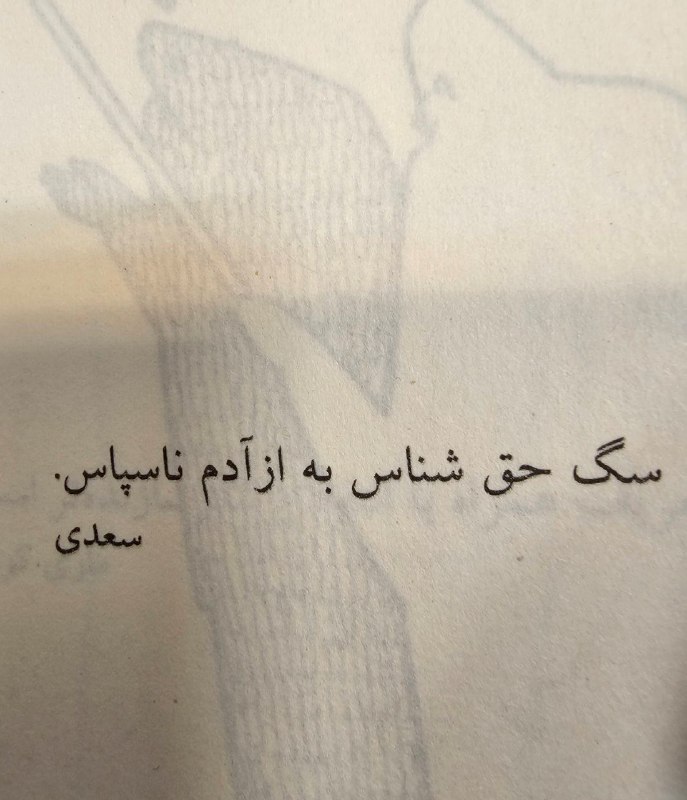 سگ حق شناس به از آدم ناسپاس.
سعدی